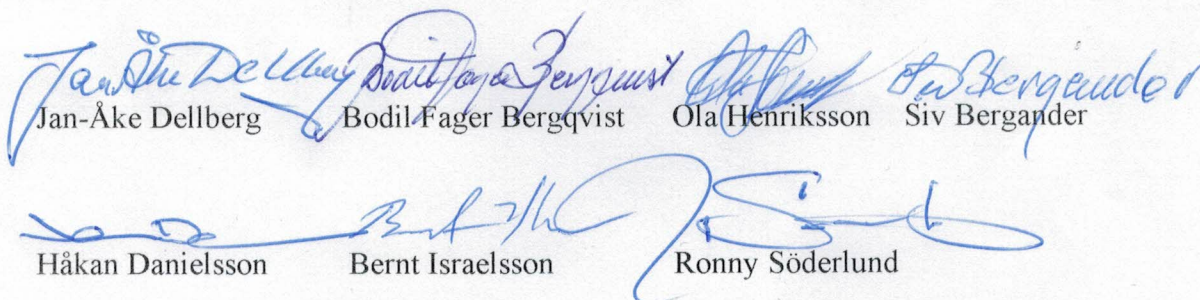 Jan Åke Dellberg Bodil Fager Bergqvist Siv Bergander
Jan-Åke Dellberg Bodil Fager Bergqvist Ola Henriksson Siv Bergander
Håkan Danielsson Bernt Israelsson Ronny Söderlund